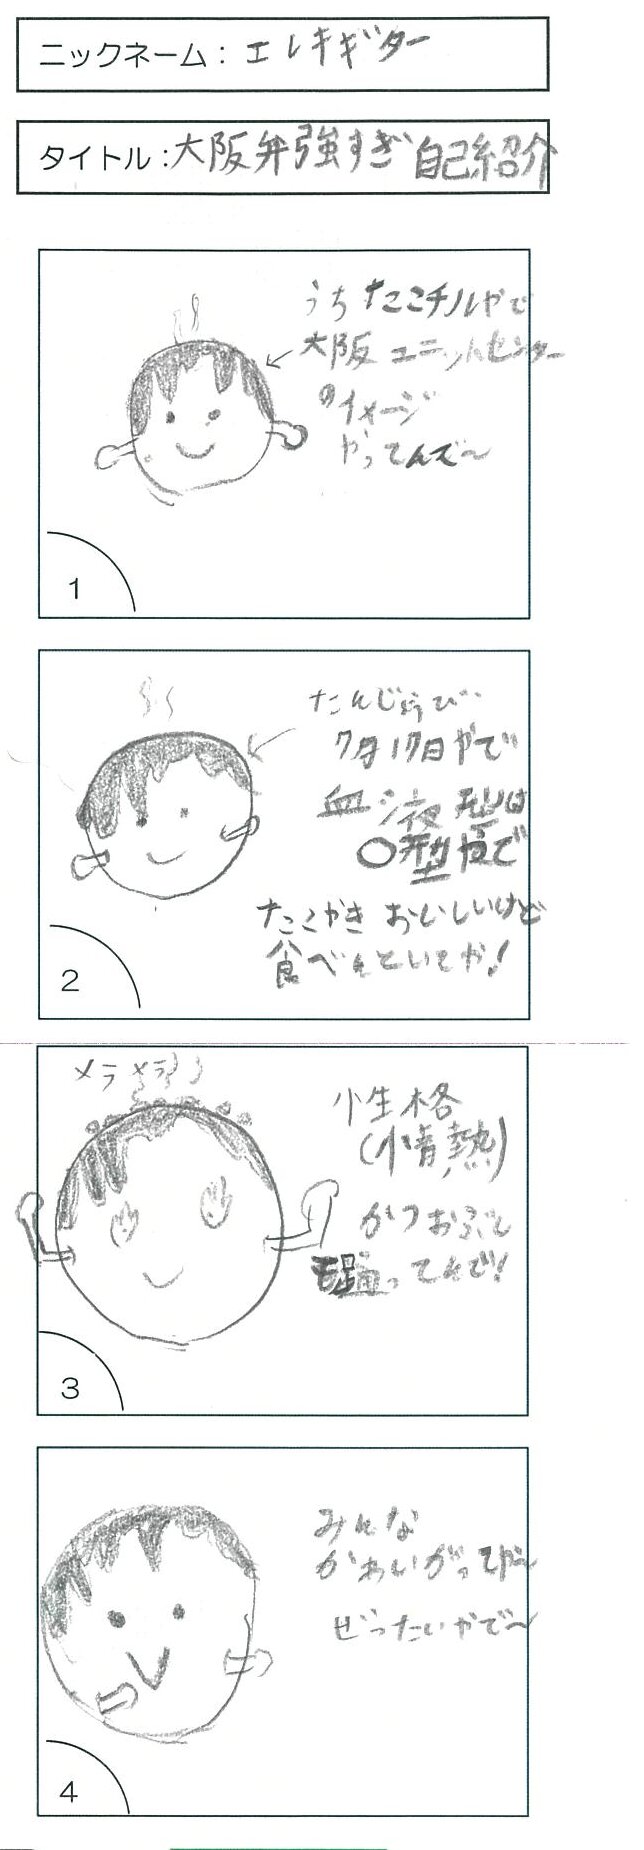 ニックネーム：エレキギター
タイトル：大阪弁強すぎ自己紹介
うちたこチルやで
大阪ユニットセンター
のイメージ
やってんで～
1
たんじょうび
7月17日やで
血液型は
〇型やで
たこやきおいしいけど
食べんといてや！
2
メラメラ
性格
(情熱)
かつおぶし
ってんで！
3
みんな
かわいがってや～
ぜったいやで～
4